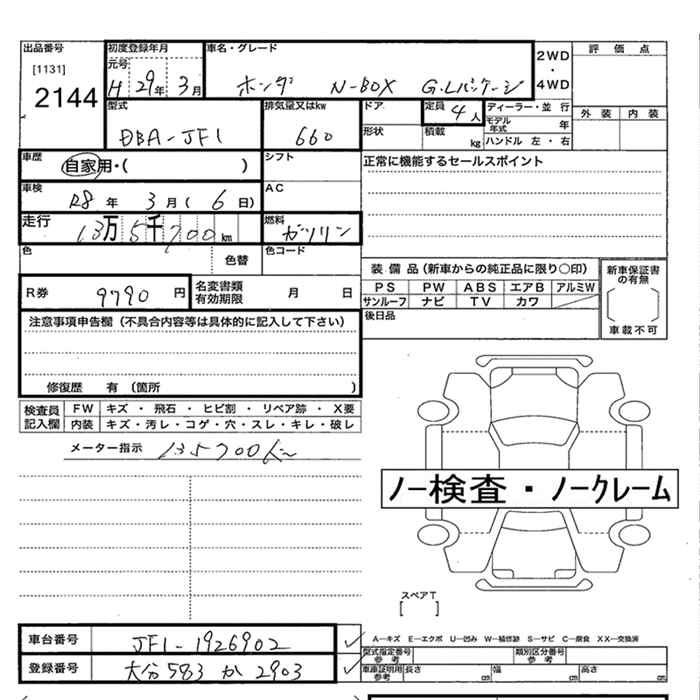 出品番号
[1131]
2144
初度登録年月
元号
H 29年 3月
車名・グレード
ホンダ N-BOX G・Lパッケージ
2WD
・
4WD
評価点
型式
DBA-JF1
排気量又はkw
660
ドア
定員 4人
ディーラー・並行
モデル年式 年
外装 内装
形状
積載 kg
ハンドル 左・右
車歴
自家用・( )
シフト
正常に機能するセールスポイント
車検
R8 年 3 月 ( 6 日)
AC
走行
13万5千700km
燃料
ガソリン
色
色替
色コード
装備品(新車からの純正品に限り〇印)
PS PW ABS エアB アルミW
サンルーフ ナビ TV カワ
新車保証書の有無
車載不可
R券
9790 円
名変書類有効期限 月 日
後日品
注意事項申告欄(不具合内容等は具体的に記入して下さい)
修復歴 有 (箇所 )
検査員記入欄
FW キズ・飛石・ヒビ割・リペア跡・X要
内装 キズ・汚レ・コゲ・穴・スレ・キレ・破レ
メーター指示 135700km
ノー検査・ノークレーム
スペアT
[ ]
車台番号 JF1-1926902
A―キズ E―エクボ U―凹み W―補修跡 S―サビ C―腐食 XX―交換済
型式指定番号 参考
類別区分番号 参考
登録番号 大分 583 か 2903
車庫証明用 参考 長さ cm 幅 cm 高さ cm